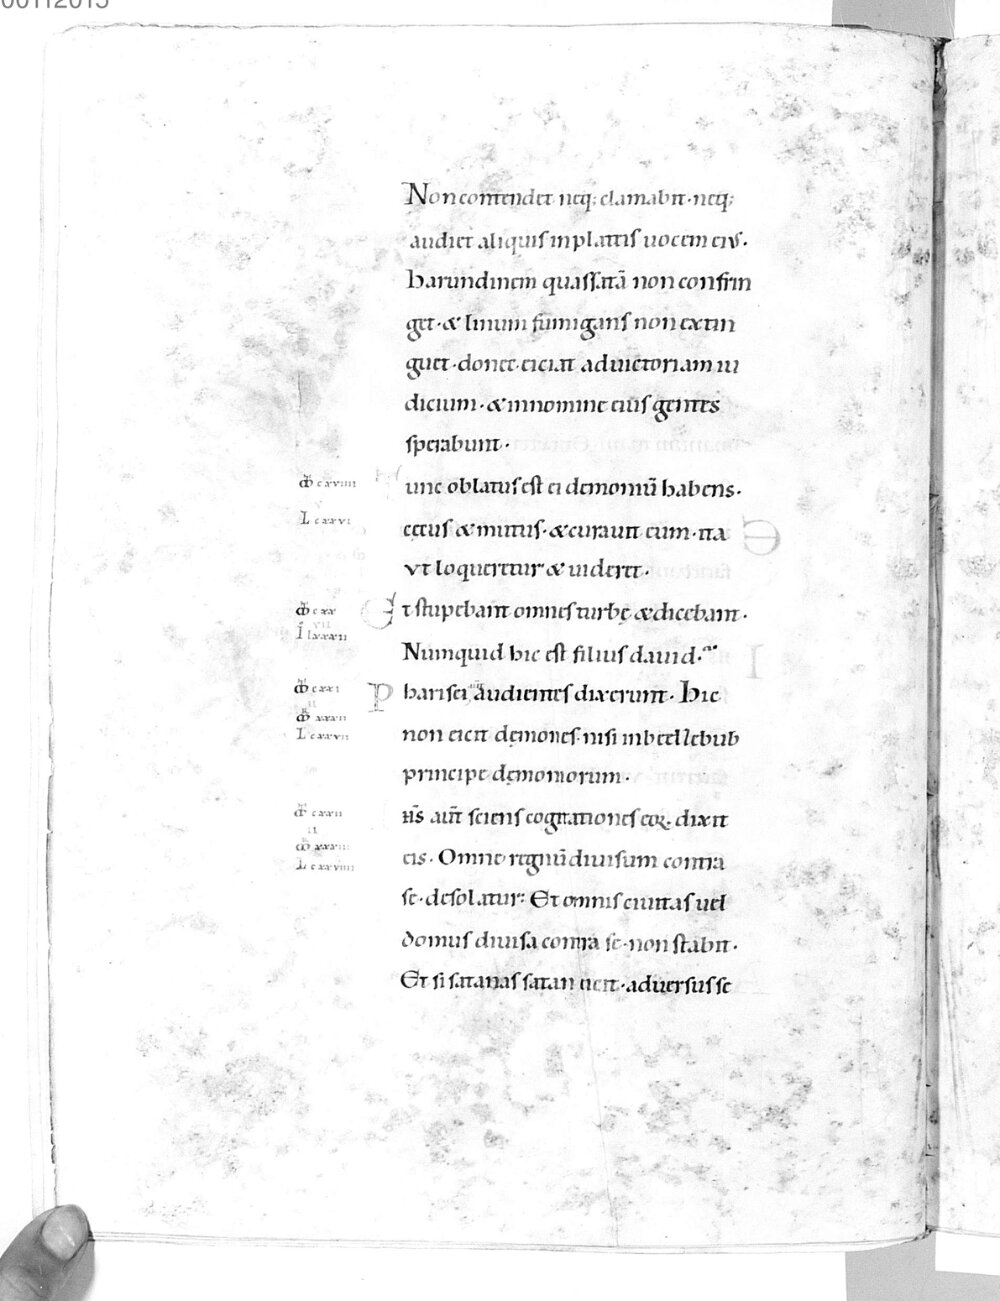 Non contendet neq; clamabit· neq;
audiet aliquis in plateis uocem eius·
harundinem quassatā non confrin
get· & linum fumigans non extin
guet· donec eiciat ad uictoriam iu
dicium· & in nomine eius gentes
sperabunt·
Tunc oblatus est ei demoniū habens·
cecus & mutus· & curauit eum· ita
vt loqueretur & uideret·
Et stupebant omnes turbę & dicebant·
Numquid hic est filius dauid·
Pharisei aūt audientes dixerunt· Hic
non eicit dęmones· nisi in beellzebub
principe dęmoniorum·
ih̄s aūt sciens cogitationes eoꝝ· dixit
eis· Omne regnū diuisum contra
se· desolatur: Et omnis ciuitas uel
domus diuisa contra se· non stabit·
Et si satanas satan eicit· aduersus se